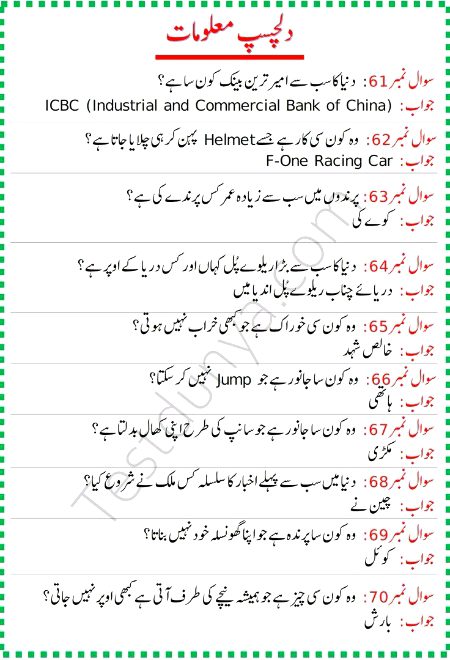 دلچسپ معلومات
سوال نمبر 61: دنیا کا سب سے امیر ترین بینک کون سا ہے؟
جواب: ICBC (Industrial and Commercial Bank of China)
سوال نمبر 62: وہ کون سی کار ہے جسے Helmet پہن کر ہی چلایا جاتا ہے؟
جواب: F-One Racing Car
سوال نمبر 63: پرندوں میں سب سے زیادہ عمر کس پرندے کی ہے؟
جواب: کوے کی
سوال نمبر 64: دنیا کا سب سے بڑا ریلوے پُل کہاں اور کس دریا کے اوپر ہے؟
جواب: دریائے چناب ریلوے پُل انڈیا میں
سوال نمبر 65: وہ کون سی خوراک ہے جو کبھی خراب نہیں ہوتی؟
جواب: خالص شہد
سوال نمبر 66: وہ کون سا جانور ہے جو Jump نہیں کر سکتا؟
جواب: ہاتھی
سوال نمبر 67: وہ کون سا جانور ہے جو سانپ کی طرح اپنی کھال بدلتا ہے؟
جواب: مکڑی
سوال نمبر 68: دنیا میں سب سے پہلے اخبار کا سلسلہ کس ملک نے شروع کیا؟
جواب: چین نے
سوال نمبر 69: وہ کون سا پرندہ ہے جو اپنا گھونسلہ خود نہیں بناتا؟
جواب: کوئل
سوال نمبر 70: وہ کون سی چیز ہے جو ہمیشہ نیچے کی طرف آتی ہے کبھی اوپر نہیں جاتی؟
جواب: بارش
Testdunya.com